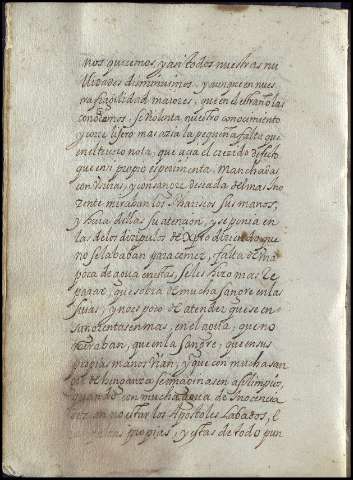 nos queremos, y asi todos nuestras nu
lidades disminuimos, y aunque en nues
tra fragilidad maiores, que en el estraño las
conozcamos, se violenta nuestro conocimiento
y corre lijero mas asia la pequeña falta que
en el tercero nota, que a ga el crezido defecto
que en si propio esperimenta. Manchadas
con vsuras, y con sangre deseada del mas Ino
zente miraban los Phariseos sus manos,
y huia dellas su atencion, y se ponia en
las de los dizipulos de Xpto diziendo que
no se lababan para comer, falta de mui
poca de agua en estas, se les hizo mas re
parar, que sobra de mucha sangre en las
suias, y no es poco de atender que se en
sangrentasen mas, en el agua, que no
miraban, que en la sangre, que en sus
propias manos vian, y que con mucha san
gre de benganza se imaginasen a si limpios,
quando con mucha agua de Inocencia
dizian no estar los Apostoles labados, e
propias, y estas de todo pun